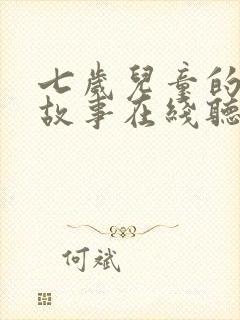 七歲兒童的
故事在綫聽
何斌